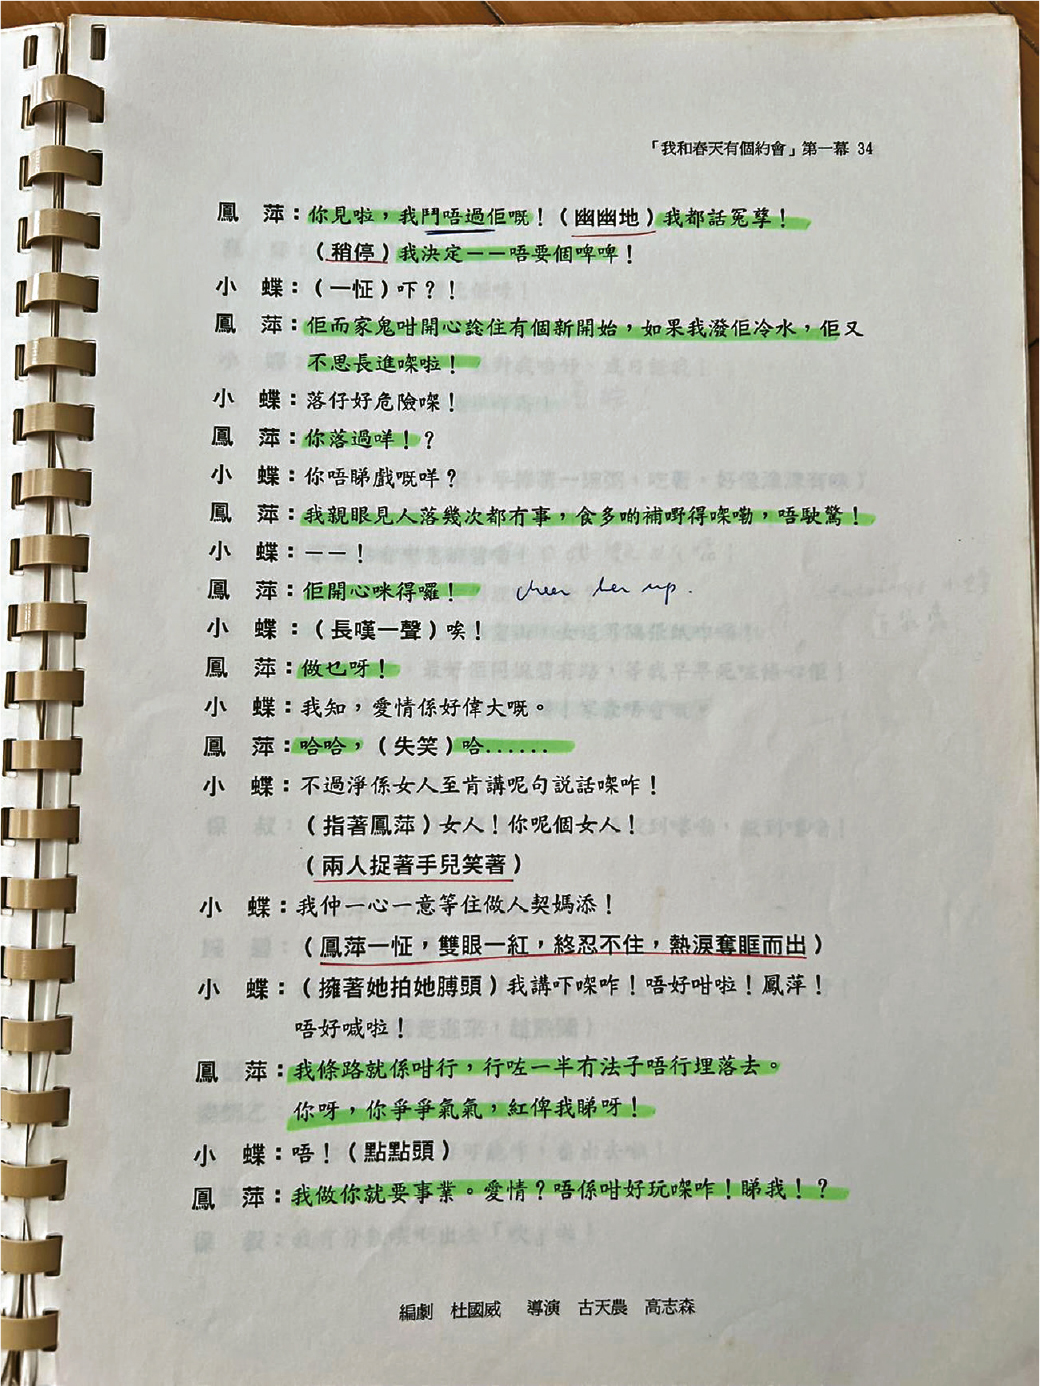 「我和春天有個約會」第一幕 34
鳳　萍：你見啦，我鬥唔過佢嘅！（幽幽地）我都話冤孽！
（稍停）我決定－－唔要個啤啤！
小　蝶：（一怔）吓？！
鳳　萍：佢而家鬼咁開心諗住有個新開始，如果我潑佢冷水，佢又
不思長進㗎啦！
小　蝶：落仔好危險㗎！
鳳　萍：你落過咩！？
小　蝶：你唔睇戲嘅咩？
鳳　萍：我親眼見人落幾次都冇事，食多啲補嘢得㗎嘞，唔駛驚！
小　蝶：－－！
鳳　萍：佢開心咪得囉！ cheer her up.
小　蝶：（長嘆一聲）唉！
鳳　萍：做乜呀！
小　蝶：我知，愛情係好偉大嘅。
鳳　萍：哈哈，（失笑）哈......
小　蝶：不過淨係女人至肯講呢句說話㗎咋！
（指著鳳萍）女人！你呢個女人！
（兩人捉著手兒笑著）
小　蝶：我仲一心一意等住做人契媽添！
（鳳萍一怔，雙眼一紅，終忍不住，熱淚奪眶而出）
小　蝶：（擁著她拍她膊頭）我講吓㗎咋！唔好咁啦！鳳萍！
唔好喊啦！
鳳　萍：我條路就係咁行，行咗一半冇法子唔行埋落去。
你呀，你爭爭氣氣，紅俾我睇呀！
小　蝶：唔！（點點頭）
鳳　萍：我做你就要事業。愛情？唔係咁好玩㗎咋！睇我！？
編劇　杜國威　導演　古天農　高志森